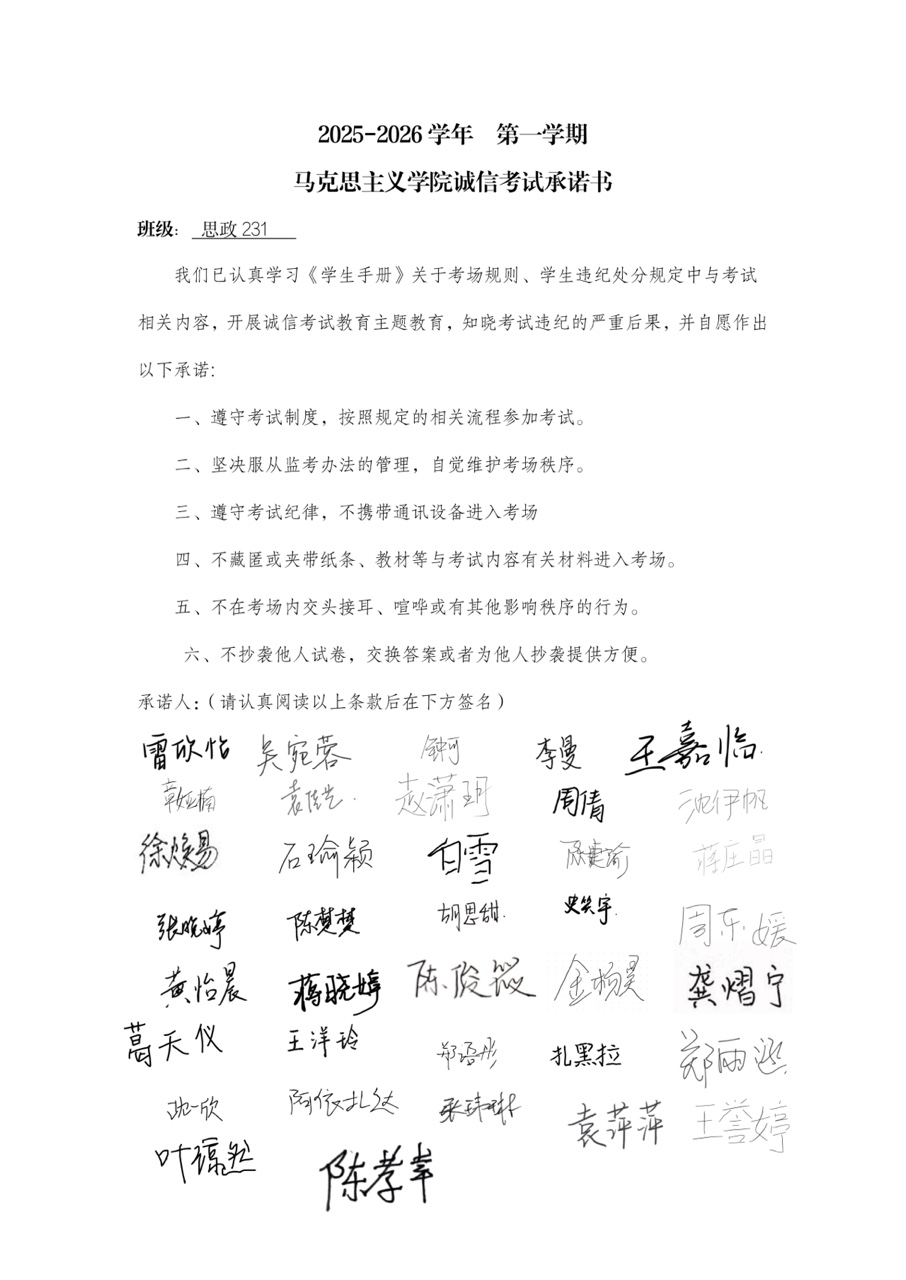 2025-2026 学年 第一学期
马克思主义学院诚信考试承诺书
班级: 思政 231
我们已认真学习《学生手册》关于考场规则、学生违纪处分规定中与考试
相关内容，开展诚信考试教育主题教育，知晓考试违纪的严重后果，并自愿作出
以下承诺:
一、遵守考试制度，按照规定的相关流程参加考试。
二、坚决服从监考办法的管理，自觉维护考场秩序。
三、遵守考试纪律，不携带通讯设备进入考场
四、不藏匿或夹带纸条、教材等与考试内容有关材料进入考场。
五、不在考场内交头接耳、喧哗或有其他影响秩序的行为。
六、不抄袭他人试卷，交换答案或者为他人抄袭提供方便。
承诺人:(请认真阅读以上条款后在下方签名)
雷欣怡 吴宛蓉 李曼 王嘉临
章娅楠 赵萧玥 周倩 沈伊帆
徐焕易 石瑜颖 白雪 蒋庄晶
张晓婷 陈楚楚 胡思甜 周东媛
黄怡晨 蒋晓婷 陈俊 金杨昊 龚熠宁
葛天仪 王洋玲 郑语彤 扎黑拉 郑雨
沈一欣 阿依扎达 袁萍萍 王誉婷
叶 然 陈孝